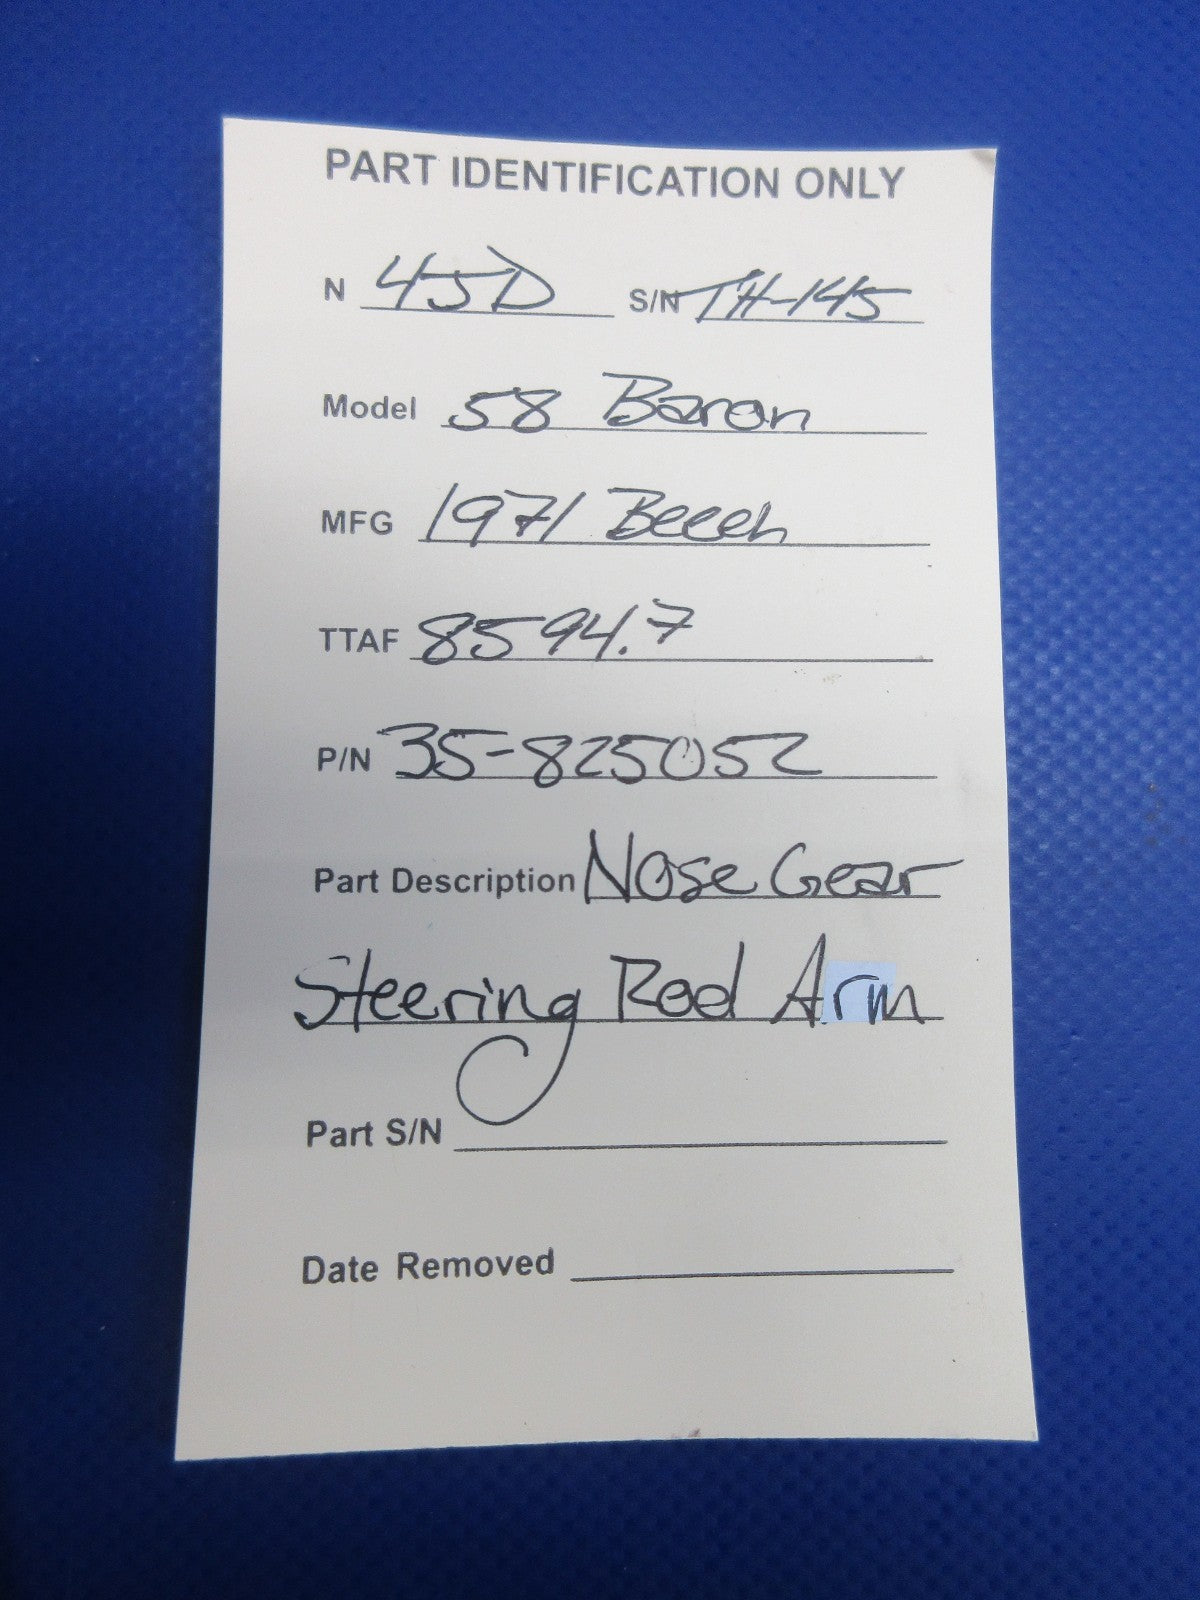 PART IDENTIFICATION ONLY
N 45D S/N TH-145
Model 58 Baron
MFG 1971 Beech
TTAF 8594.7
P/N 35-825052
Part Description Nose Gear
Steering Rod Arm
Part S/N
Date Removed